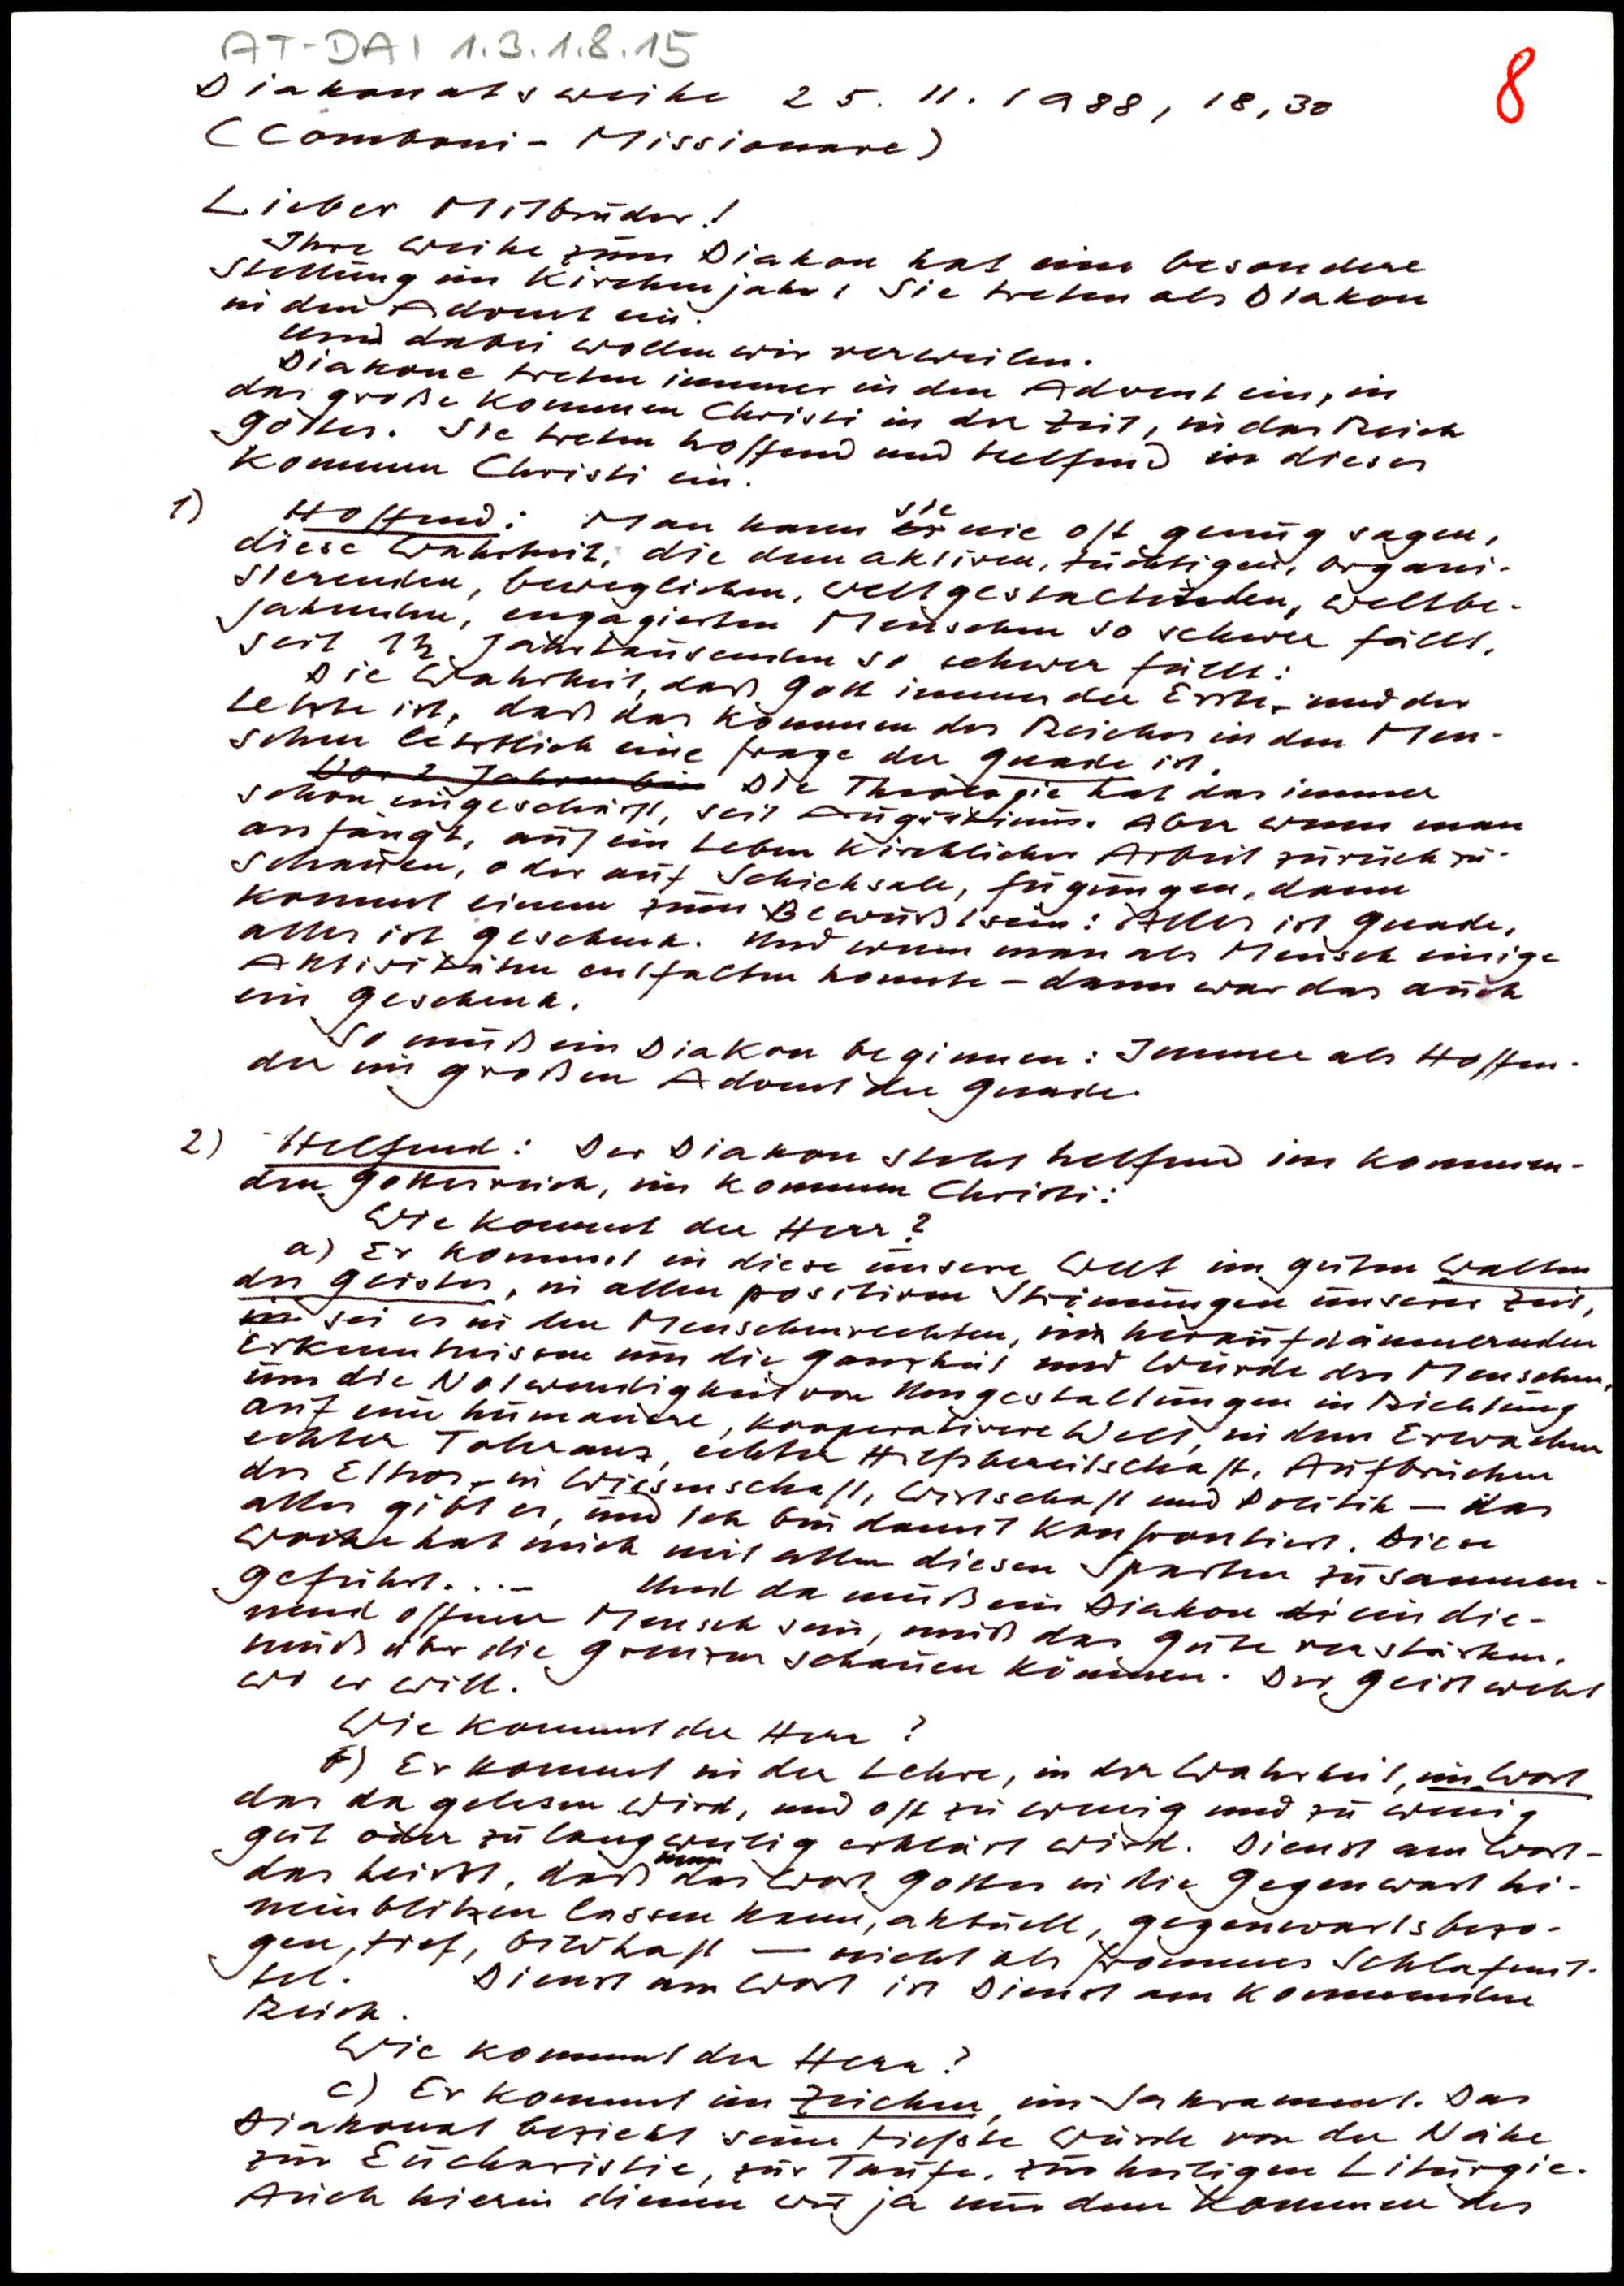 AT-DAI 1.3.1.8.15
8
Diakonatsweihe 25.11.1988, 18,30
(Comboni-Missionare)
Lieber Mitbruder!
Ihre Weihe zum Diakon hat eine besondere
Stellung im Kirchenjahr: Sie treten als Diakon
in den Advent ein.
Und dabei wollen wir verweilen.
Diakone treten immer in den Advent ein, in
das große Kommen Christi in der Zeit, in das Reich
Gottes. Sie treten hoffend und helfend in dieses
Kommen Christi ein.
1) Hoffend: Man kann sie nie oft genug sagen,
diese Wahrheit, die dem aktiven, tüchtigen, organi-
sierenden, beweglichen, weltgestaltenden, weltbe-
jahenden, engagierten Menschen so schwer fällt,
seit Jahrtausenden so schwer fällt:
Die Wahrheit, daß Gott immer der Erste und der
Letzte ist, daß das Kommen des Reiches in den Men-
schen letztlich eine Frage der Gnade ist.
Vor 2 Jahren bin Die Theologie hat das immer
schon eingeschärft, seit Augustinus. Aber wenn man
anfängt, auf ein Leben kirchlicher Arbeit zurückzu-
schauen, oder auf Schicksale, Fügungen, dann
kommt einem zum Bewußtsein: Alles ist Gnade,
alles ist Geschenk. Und wenn man als Mensch einige
Aktivitäten entfalten konnte – dann war das auch
ein Geschenk.
So muß ein Diakon beginnen: Immer als Hoffen-
der im großen Advent der Gnade.
2) Helfend: Der Diakon steht helfend im kommen-
den Gottesreich, im Kommen Christi:
Wie kommt der Herr?
a) Er kommt in diese unsere Welt im guten Walten
des Geistes, in allen positiven Strömungen unserer Zeit,
sei es in den Menschenrechten, in heraufdämmernden
Erkenntnissen um die Ganzheit und Würde des Menschen,
um die Notwendigkeit von Umgestaltungen in Richtung
auf eine humanere, kooperativere Welt, in dem Erwachen
echter Toleranz, echter Hilfsbereitschaft, Aufbrüchen
des Ethos in Wissenschaft, Wirtschaft und Politik – das
alles gibt es, und ich bin damit konfrontiert. Diese
Woche hat mich mit allen diesen Sparten zusammen-
geführt...– Und da muß ein Diakon ein die-
nend offener Mensch sein, muß das Gute verstärken,
muß über die Grenzen schauen können. Der Geist weht
wo er will.
Wie kommt der Herr?
b) Er kommt in der Lehre, in der Wahrheit, im Wort
das da gelesen wird, und oft zu wenig und zu wenig
gut oder zu langweilig erklärt wird. Dienst am Wort-
das heißt, daß man das Wort Gottes in die Gegenwart hi-
neinblitzen lassen kann, aktuell, gegenwartsbezo-
gen, tief, bildhaft — nicht als frommes Schlafmit-
tel. Dienst am Wort ist Dienst am kommenden
Reich.
Wie kommt der Herr?
c) Er kommt im Zeichen, im Sakrament. Das
Diakonat bezieht seine tiefste Würde von der Nähe
zur Eucharistie, zur Taufe, zur heiligen Liturgie.
Auch hierin dienen wir ja nur dem Kommen des